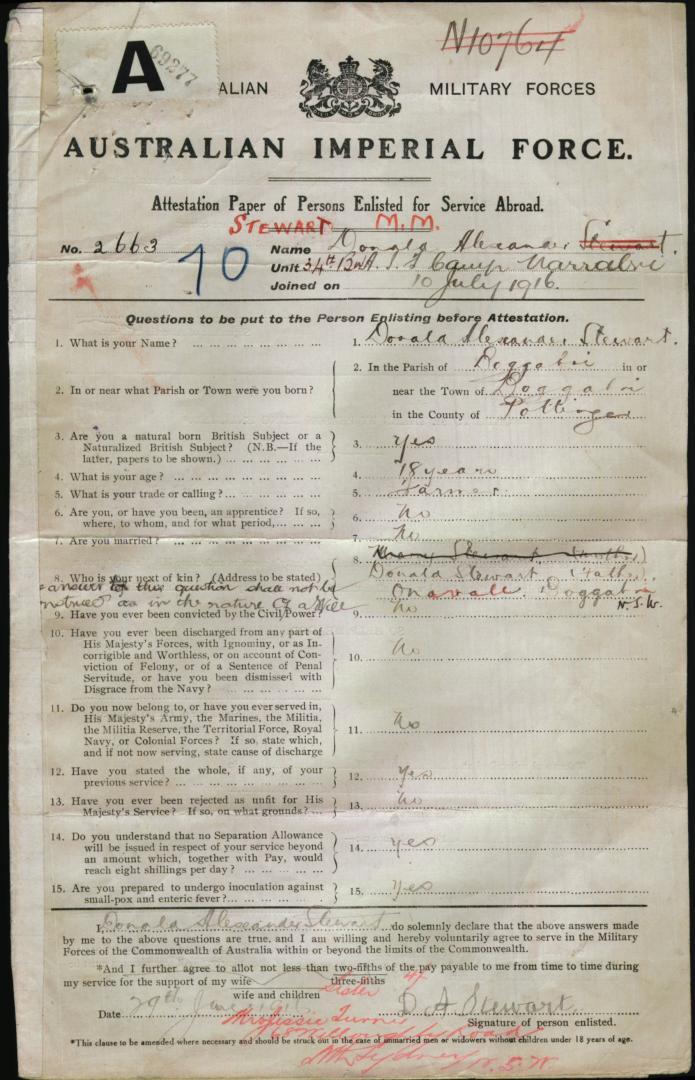 N10764
A
69277
ALIAN MILITARY FORCES
AUSTRALIAN IMPERIAL FORCE.
Attestation Paper of Persons Enlisted for Service Abroad.
STEWART M.M.
No. 2663 10 Name Donald Alexander Stewart.
Unit 34th Bn A.I.F Camp Narrabri
Joined on 10 July 1916.
Questions to be put to the Person Enlisting before Attestation.
1. What is your Name? 1. Donald Alexander Stewart.
2. In or near what Parish or Town were you born? 2. In the Parish of Boggabri in or
near the Town of Boggabri
in the County of Pottinger
3. Are you a natural born British Subject or a
Naturalized British Subject? (N.B.—If the
latter, papers to be shown.) 3. Yes
4. What is your age? 4. 18 years
5. What is your trade or calling? 5. Farmer
6. Are you, or have you been, an apprentice? If so,
where, to whom, and for what period 6. No
7. Are you married? 7. No
8. Stewart (Mother)
8. Who is your next of kin? (Address to be stated) Donald Stewart (Father)
answer to this question shall not be Onavale Boggabri
as in the nature of a Will N.S.W.
9. Have you ever been convicted by the Civil Power? 9. No
10. Have you ever been discharged from any part of
His Majesty's Forces, with Ignominy, or as In-
corrigible and Worthless, or on account of Con-
viction of Felony, or of a Sentence of Penal
Servitude, or have you been dismissed with
Disgrace from the Navy? 10. No
11. Do you now belong to, or have you ever served in,
His Majesty's Army, the Marines, the Militia,
the Militia Reserve, the Territorial Force, Royal
Navy, or Colonial Forces? If so, state which,
and if not now serving, state cause of discharge 11. No
12. Have you stated the whole, if any, of your
previous service? 12. Yes
13. Have you ever been rejected as unfit for His
Majesty's Service? If so, on what grounds? 13. No
14. Do you understand that no Separation Allowance
will be issued in respect of your service beyond
an amount which, together with Pay, would
reach eight shillings per day? 14. yes
15. Are you prepared to undergo inoculation against
small-pox and enteric fever? 15. Yes
I, Donald Alexander Stewart do solemnly declare that the above answers made
by me to the above questions are true, and I am willing and hereby voluntarily agree to serve in the Military
Forces of the Commonwealth of Australia within or beyond the limits of the Commonwealth.
*And I further agree to allot not less than two-fifths of the pay payable to me from time to time during
three-fifths
my service for the support of my wife
wife and children
Sister
Date 29th June 1916 D A Stewart
Signature of person enlisted.
Turner
Road
Nth Sydney N.S.W.
*This clause to be amended where necessary and should be struck out in the case of unmarried men or widowers without children under 18 years of age.